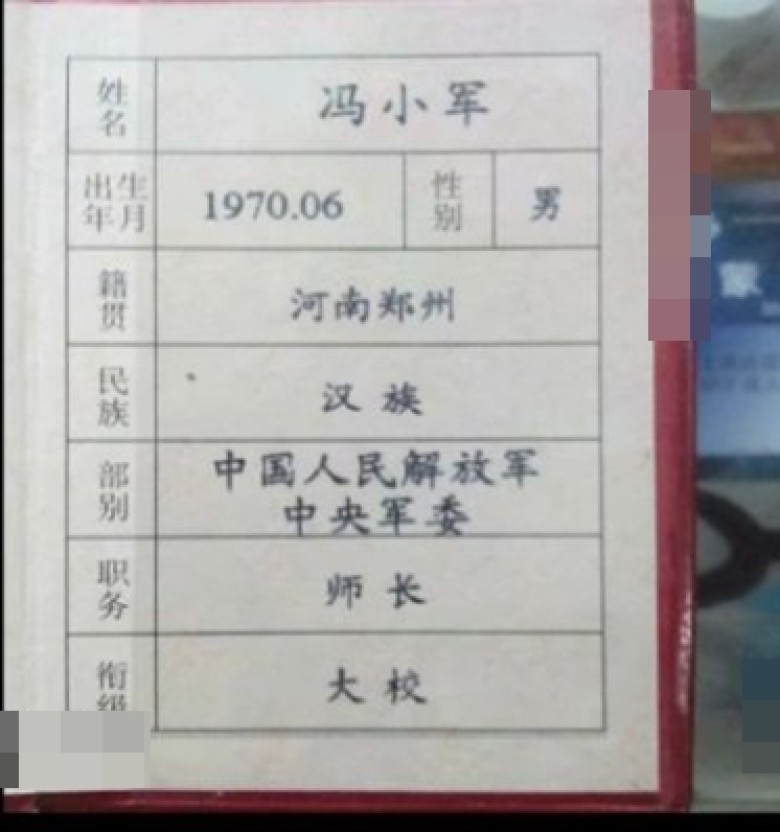 姓名 冯小军
出生年月 1970.06 性别 男
籍贯 河南郑州
民族 汉族
部别 中国人民解放军
中央军委
职务 师长
衔级 大校
家